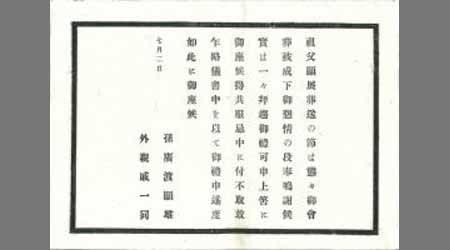 祖父顯展葬送の節は態々御會
葬被成下御懇情の段奉鳴謝候
實は一々拜趨御禮可申上筈に
御座候得共服忌中に付不取敢
乍略儀書中を以て御禮申述度
如此に御座候
七月二日
孫 廣渡顯
外親戚一同